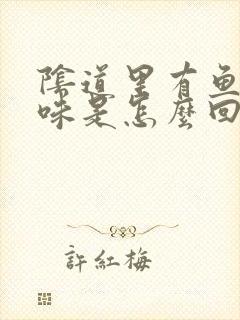 陰道里有魚
味是怎麼回
許紅梅